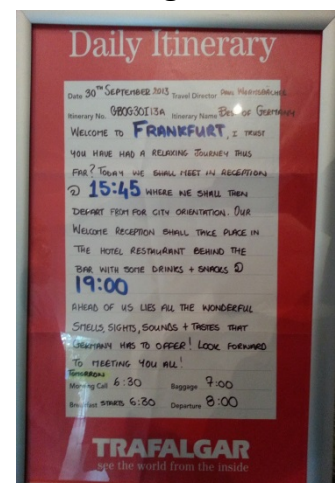 Daily Itinerary
Date 30TH SEPTEMBER 2013 Travel Director PAUL
Itinerary No. GBOG30I13A Itinerary Name BEST OF GERMANY
WELCOME TO FRANKFURT, I TRUST
YOU HAVE HAD A RELAXING JOURNEY THUS
FAR? TODAY WE SHALL MEET IN RECEPTION
@ 15:45 WHERE WE SHALL THEN
DEPART FROM FOR CITY ORIENTATION. OUR
WELCOME RECEPTION SHALL TAKE PLACE IN
THE HOTEL RESTAURANT BEHIND THE
BAR WITH SOME DRINKS + SNACKS @
19:00
AHEAD OF US LIES ALL THE WONDERFUL
SMELLS, SIGHTS, SOUNDS + TASTES THAT
GERMANY HAS TO OFFER! LOOK FORWARD
TO MEETING YOU ALL!
TOMORROW
Morning Call 6:30 Baggage 7:00
Breakfast STARTS 6:30 Departure 8:00
TRAFALGAR
see the world from the inside